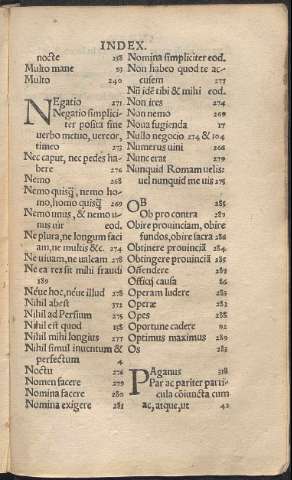 INDEX.
nocte 258
Multo mane 59
Multo 240
NEgatio 271
Negatio simplici-
ter posita sine
verbo metuo, vereor,
timeo 273
Nec caput, nec pedes ha-
bere 276
Nemo 268
Nemo quisq̃, nemo ho-
mo, homo quisq̃ 269
Nemo unus, & nemo u-
nus uir eod.
Ne plura, ne longum faci
am, ne multis &c. 274
Ne vivam, ne ualeam 278
Ne ea res sit mihi fraudi
189
Néue hoc, néue illud 278
Nihil abest 372
Nihil ad Persium 275
Nihil est quod 158
Nihil mihi longius 277
Nihil simul inuentum &
perfectum 4
Noctu 276
Nomen facere 279
Nomina facere 280
Nomina exigere 281
Nomina simpliciter eod.
Non habeo quod te ac-
cusem 277
Nũ idẽ tibi & mihi eod.
Non ires 274
Non nemo 269
Noua fugienda 17
Nullo negocio 274 & 104
Numerus uini 266
Nunc erat 279
Nunquid Romam uelis:
uel nunquid me uis 275
OB 285
Ob pro contra 287
Obire prouinciam, obire
fundos, obire sacra 286
Obtinere prouinciã 284
Obtingere prouinciã 285
Offendere 282
Officij causa 86
Operam ludere 283
Operæ 282
Opes 288
Oportune cadere 92
Optimus maximus 289
Os 283
PAganus 318
Par ac pariter parti-
cula cõiuncta cum
ac, atque, ut 42